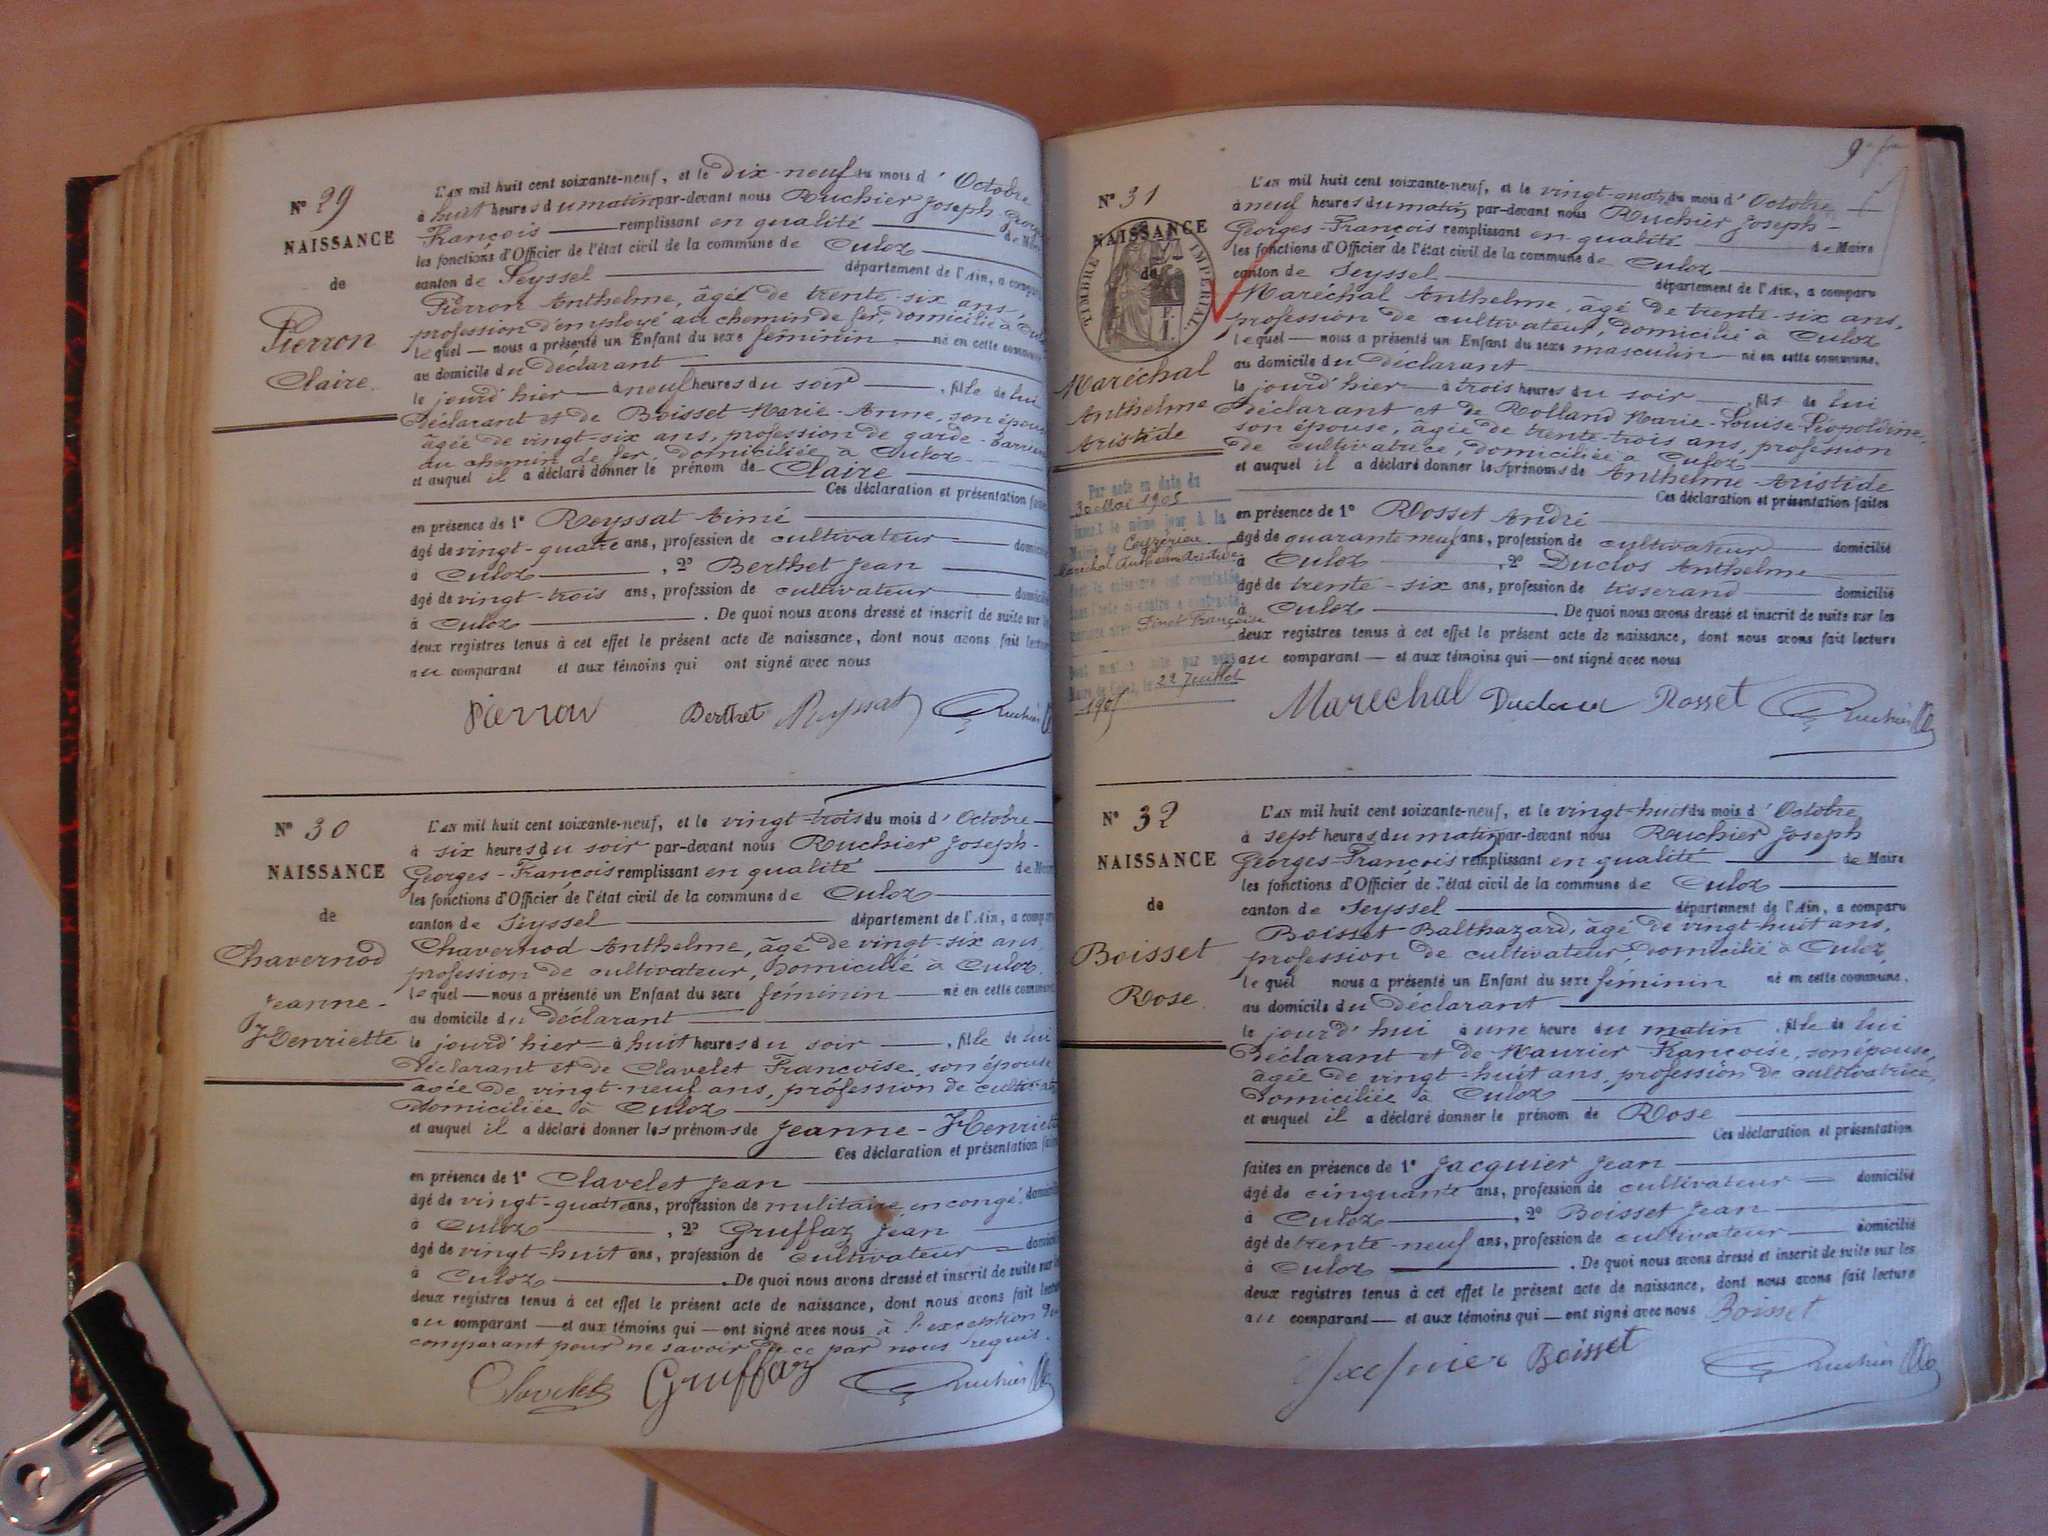 N° 29
NAISSANCE
de
Pierron
Claire.
L'AN mil huit cent soixante-neuf, et le dix-neuf du mois d'Octobre
à huit heures du matin par-devant nous Ruchier Joseph-Georges
François remplissant en qualité de Maire
les fonctions d'Officier de l'état civil de la commune de Culoz
canton de Seyssel département de l'Ain, a comparu
Pierron Anthelme, âgé de trente-six ans,
profession d'employé au chemin de fer, domicilié à Culoz
lequel nous a présenté un Enfant du sexe féminin né en cette commune
au domicile du déclarant
le jourd'hier à neuf heures du soir, fille de lui
déclarant et de Boisset Marie-Anne, son épouse
âgée de vingt-six ans, profession de garde-barrière
au chemin de fer, domiciliée à Culoz
et auquel il a déclaré donner le prénom de Claire
Ces déclaration et présentation faites
en présence de 1° Reyssat Aimé
âgé de vingt-quatre ans, profession de cultivateur domicilié
à Culoz, 2° Berthet Jean
âgé de vingt-trois ans, profession de cultivateur domicilié
à Culoz. De quoi nous avons dressé et inscrit de suite sur les
deux registres tenus à cet effet le présent acte de naissance, dont nous avons fait lecture
au comparant et aux témoins qui ont signé avec nous
Pierron Berthet Reyssat Ruchier
N° 30
NAISSANCE
de
Chavernod
Jeanne-
Henriette
L'AN mil huit cent soixante-neuf, et le vingt-trois du mois d'Octobre
à six heures du soir par-devant nous Ruchier Joseph-
Georges-François remplissant en qualité de Maire
les fonctions d'Officier de l'état civil de la commune de Culoz
canton de Seyssel département de l'Ain, a comparu
Chavernod Anthelme, âgé de vingt-six ans,
profession de cultivateur, domicilié à Culoz.
lequel nous a présenté un Enfant du sexe féminin né en cette commune
au domicile du déclarant
le jourd'hier à huit heures du soir, fille de lui
déclarant et de Clavelet Françoise, son épouse
agée de vingt-neuf ans, profession de cultivatrice
domiciliée à Culoz
et auquel il a déclaré donner les prénoms de Jeanne-Henriette
Ces déclaration et présentation faites
en présence de 1° Clavelet Jean
âgé de vingt-quatre ans, profession de militaire en congé domicilié
à Culoz, 2° Gruffaz Jean
âgé de vingt-huit ans, profession de cultivateur domicilié
à Culoz. De quoi nous avons dressé et inscrit de suite sur les
deux registres tenus à cet effet le présent acte de naissance, dont nous avons fait lecture
au comparant et aux témoins qui ont signé avec nous à l'exception du
comparant pour ne savoir de ce par nous requis.
Clavelet Gruffaz Ruchier
9
N° 31
NAISSANCE
de
TIMBRE IMPERIAL
Maréchal
Anthelme
Aristide
Par acte en date du
30 Mai 1905
le même jour à la
Mairie de Ceyzérieu
Maréchal Anthelme Aristide
dont la naissance est constatée
dans l'acte ci-contre a contracté
mariage avec Pinet Françoise
22 Juillet
1905
L'AN mil huit cent soixante-neuf, et le vingt-quatre du mois d'Octobre
à neuf heures du matin par-devant nous Ruchier Joseph-
Georges-François remplissant en qualité de Maire
les fonctions d'Officier de l'état civil de la commune de Culoz
canton de Seyssel département de l'Ain, a comparu
Maréchal Anthelme, âgé de trente-six ans,
profession de cultivateur, domicilié à Culoz
lequel nous a présenté un Enfant du sexe masculin né en cette commune.
au domicile du déclarant
le jourd'hier à trois heures du soir, fils de lui
déclarant et de Rolland Marie-Louise Léopoldine,
son épouse, âgée de trente-trois ans, profession
de cultivatrice, domiciliée à Culoz
et auquel il a déclaré donner les prénoms de Anthelme Aristide
Ces déclaration et présentation faites
en présence de 1° Rosset André
âgé de quarante neuf ans, profession de cultivateur domicilié
à Culoz, 2° Duclos Anthelme
âgé de trente-six ans, profession de tisserand domicilié
à Culoz. De quoi nous avons dressé et inscrit de suite sur les
deux registres tenus à cet effet le présent acte de naissance, dont nous avons fait lecture
au comparant et aux témoins qui ont signé avec nous
Marechal Rosset Ruchier
N° 32
NAISSANCE
de
Boisset
Rose.
L'AN mil huit cent soixante-neuf, et le vingt-huit du mois d'Octobre
à sept heures du matin par-devant nous Ruchier Joseph
Georges-François remplissant en qualité de Maire
les fonctions d'Officier de l'état civil de la commune de Culoz
canton de Seyssel département de l'Ain, a comparu
Boisset Balthazard, âgé de vingt-huit ans,
profession de cultivateur, domicilié à Culoz,
lequel nous a présenté un Enfant du sexe féminin né en cette commune.
au domicile du déclarant
le jourd'hui à une heure du matin, fille de lui
déclarant et de Maurier Françoise, son épouse,
âgée de vingt-huit ans, profession de cultivatrice,
domiciliée à Culoz
et auquel il a déclaré donner le prénom de Rose
Ces déclaration et présentation
faites en présence de 1° Jacquier Jean
âgé de cinquante ans, profession de cultivateur domicilié
à Culoz, 2° Boisset Jean
âgé de trente-neuf ans, profession de cultivateur domicilié
à Culoz. De quoi nous avons dressé et inscrit de suite sur les
deux registres tenus à cet effet le présent acte de naissance, dont nous avons fait lecture
au comparant et aux témoins qui ont signé avec nous Boisset
Boisset Ruchier